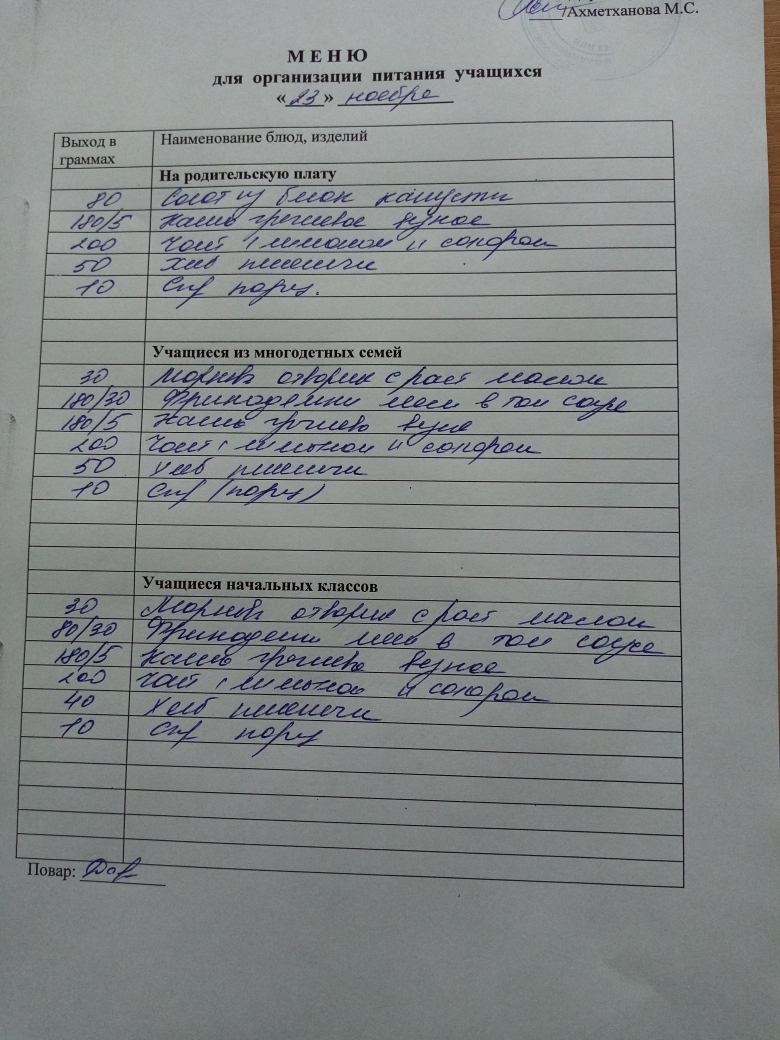 /Ахметханова М.С.
МЕНЮ
для организации питания учащихся
«23» ноября
Выход в граммах Наименование блюд, изделий
На родительскую плату
80 Салат из белок капусты
180/5 Каша гречневое вязкое
200 Чай с лимоном и сахаром
50 Хлеб пшеничн
10 Сыр порц.
Учащиеся из многодетных семей
30 Морковь отварная с раст маслом
180/30 Фрикадельки мяс в том соусе
180/5 Каша гречнево вязко
200 Чай с лимоном и сахаром
50 Хлеб пшеничн
10 Сыр (порц)
Учащиеся начальных классов
30 Морковь отварная с раст маслом
80/30 Фрикадельки мяс в том соусе
180/5 Каша гречнево вязкое
200 Чай с лимоном и сахаром
40 Хлеб пшеничн
10 Сыр порц
Повар: